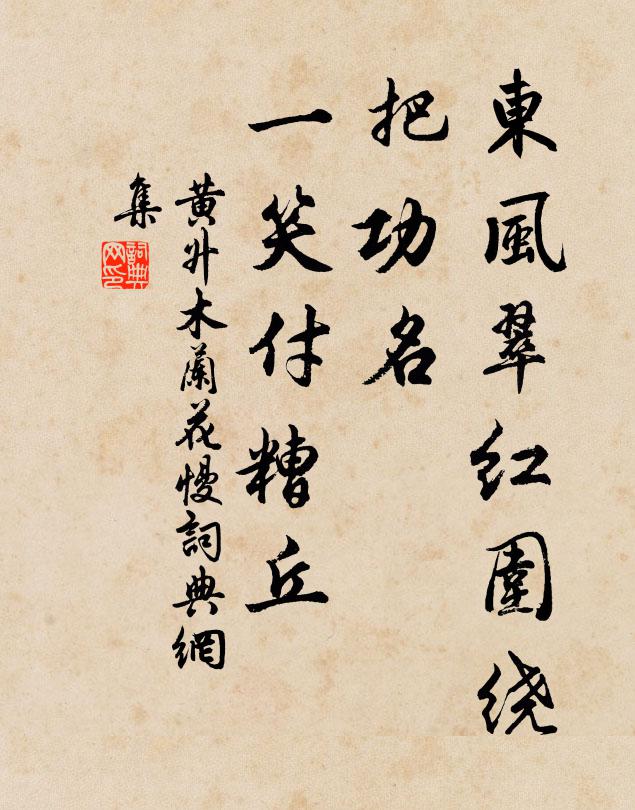 東風翠红圍绕
把功名
一笑付糟丘
黄升木蘭花慢詞典網
集
詞典
网印